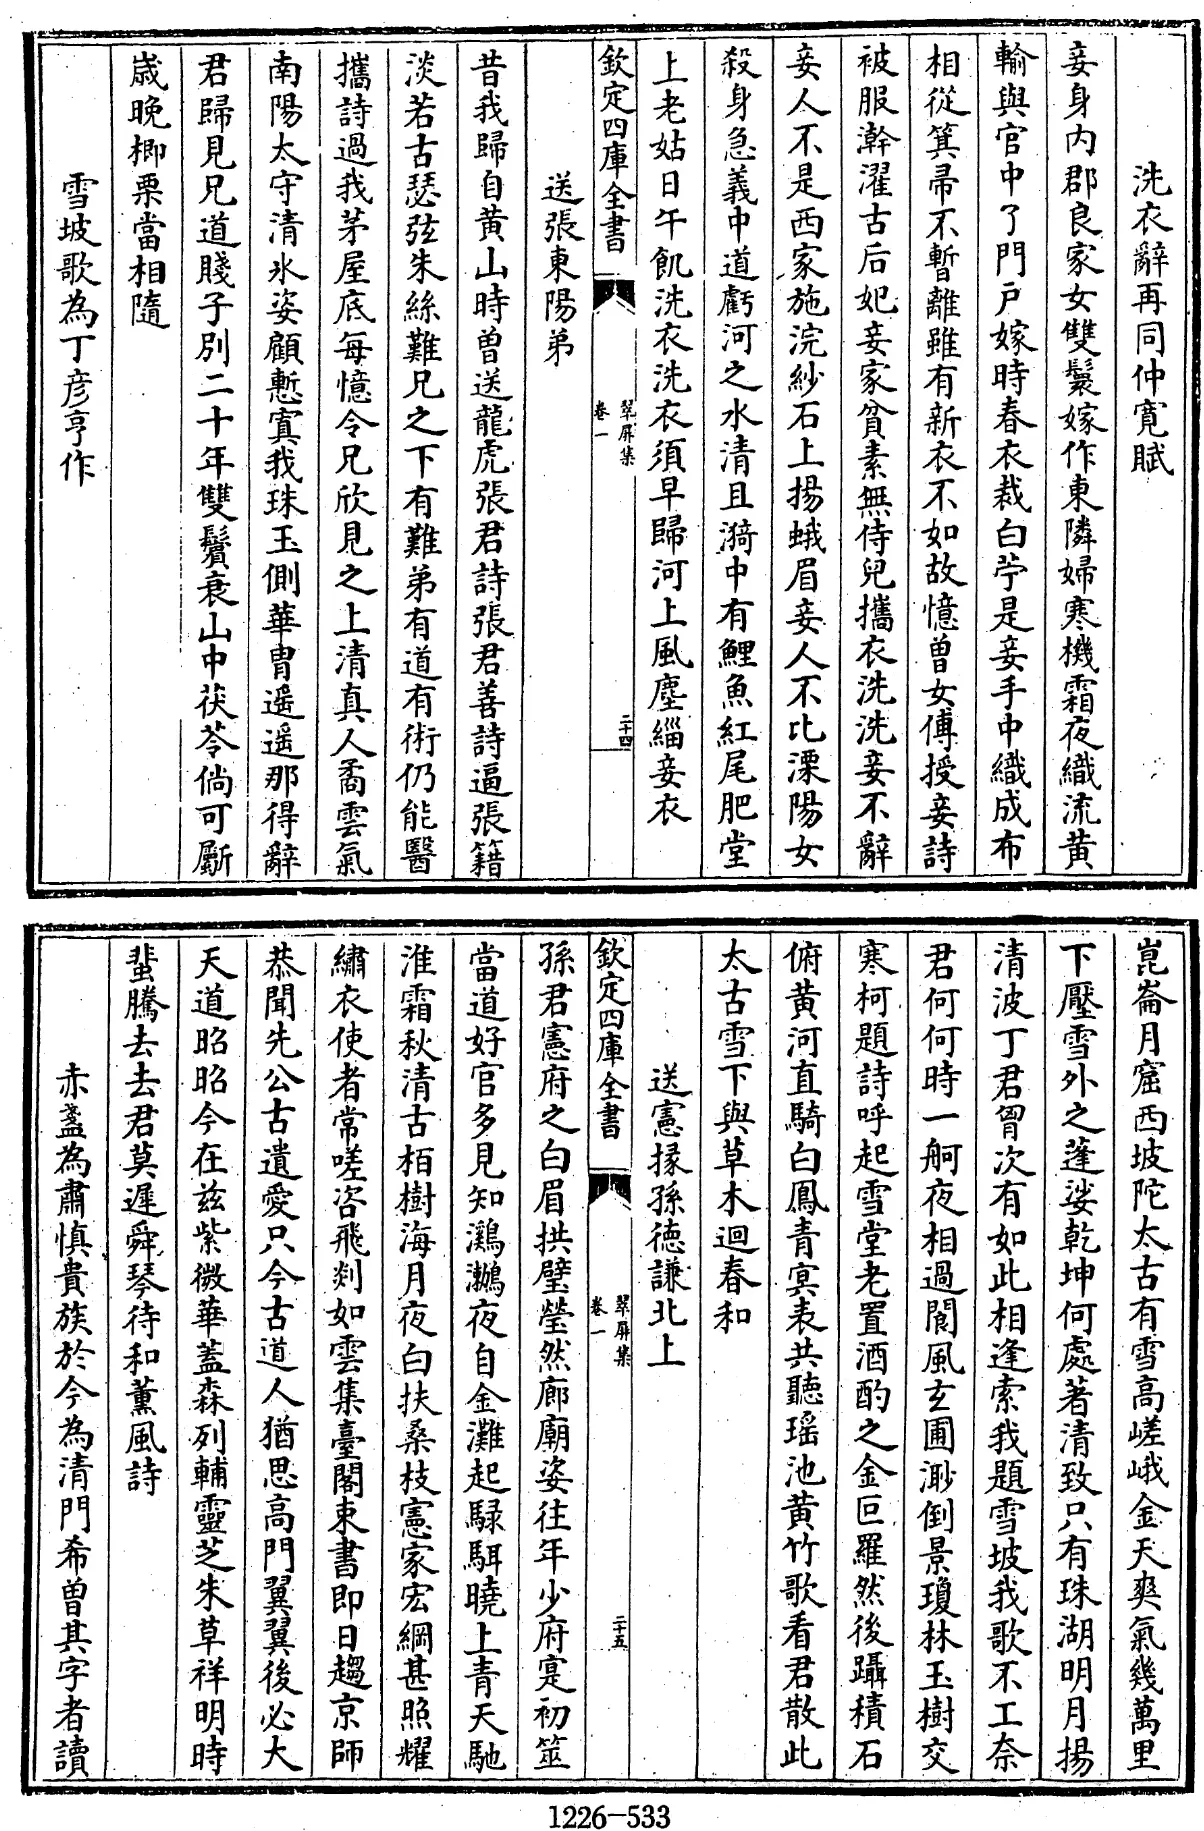 洗衣辭再同仲寛賦
妾身内郡良家女雙鬟嫁作東隣婦寒機霜夜織流黄
輸與官中了門戸嫁時春衣裁白苧是妾手中織成布
相從箕帚不暫離雖有新衣不如故憶曽女傅授妾詩
被服澣濯古后妃妾家貧素無侍兒攜衣洗洗妾不辭
妾人不是西家施浣紗石上揚蛾眉妾人不比溧陽女
殺身急義中道虧河之水清且漪中有鯉魚紅尾肥堂
上老姑日午飢洗衣洗衣須早歸河上風塵緇妾衣
欽定四庫全書
翠屏集
卷一
二十四
送張東陽弟
昔我歸自黄山時曽送龍虎張君詩張君善詩逼張籍
淡若古瑟弦朱絲難兄之下有難弟有道有術仍能醫
攜詩過我茅屋底每憶令兄欣見之上清真人矞雲氣
南陽太守清氷姿顧慙寘我珠玉側華胄遥遥那得辭
君歸見兄道賤子別二十年雙鬢衰山中茯苓倘可斸
嵗晚楖栗當相隨
雪坡歌為丁彦亨作
崑崙月窟西坡陀太古有雪高嵯峨金天爽氣幾萬里
下壓雪外之蓬婆乾坤何處著清致只有珠湖明月揚
清波丁君胷次有如此相逢索我題雪坡我歌不工奈
君何何時一舸夜相過閬風玄圃渺倒景瓊林玉樹交
寒柯題詩呼起雪堂老置酒酌之金叵羅然後躡積石
俯黄河直騎白鳳青冥表共聽瑶池黄竹歌看君散此
太古雪下與草木迴春和
送憲掾孫徳謙北上
欽定四庫全書
翠屏集
卷一
二十五
孫君憲府之白眉拱璧瑩然廊廟姿往年少府寔初筮
當道好官多見知鸂鶒夜自金灘起騄駬曉上青天馳
淮霜秋清古栢樹海月夜白扶桑枝憲家宏綱甚照耀
繡衣使者常嗟咨飛剡如雲集臺閣束書即日趨京師
恭聞先公古遺愛只今古道人猶思高門翼翼後必大
天道昭昭今在兹紫微華葢森列輔靈芝朱草祥明時
蜚騰去去君莫遲舜琴待和薰風詩
赤盞為肅慎貴族於今為清門希曽其字者讀
1226-533